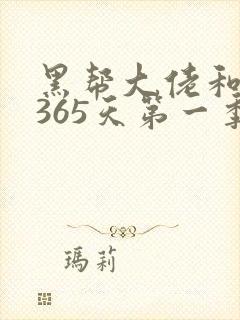 黑帮大佬和
365天第一季
玛莉